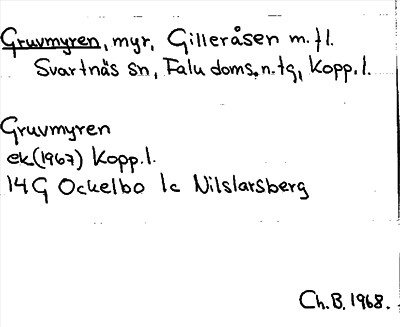 Gruvmyren, myr, Gilleråsen m.fl.
Svartnäs sn, Falu doms.n.tg, Kopp.l.
Gruvmyren
ek(1967) Kopp.l.
14G Ockelbo 1c Nilslarsberg
Ch.B. 1968.